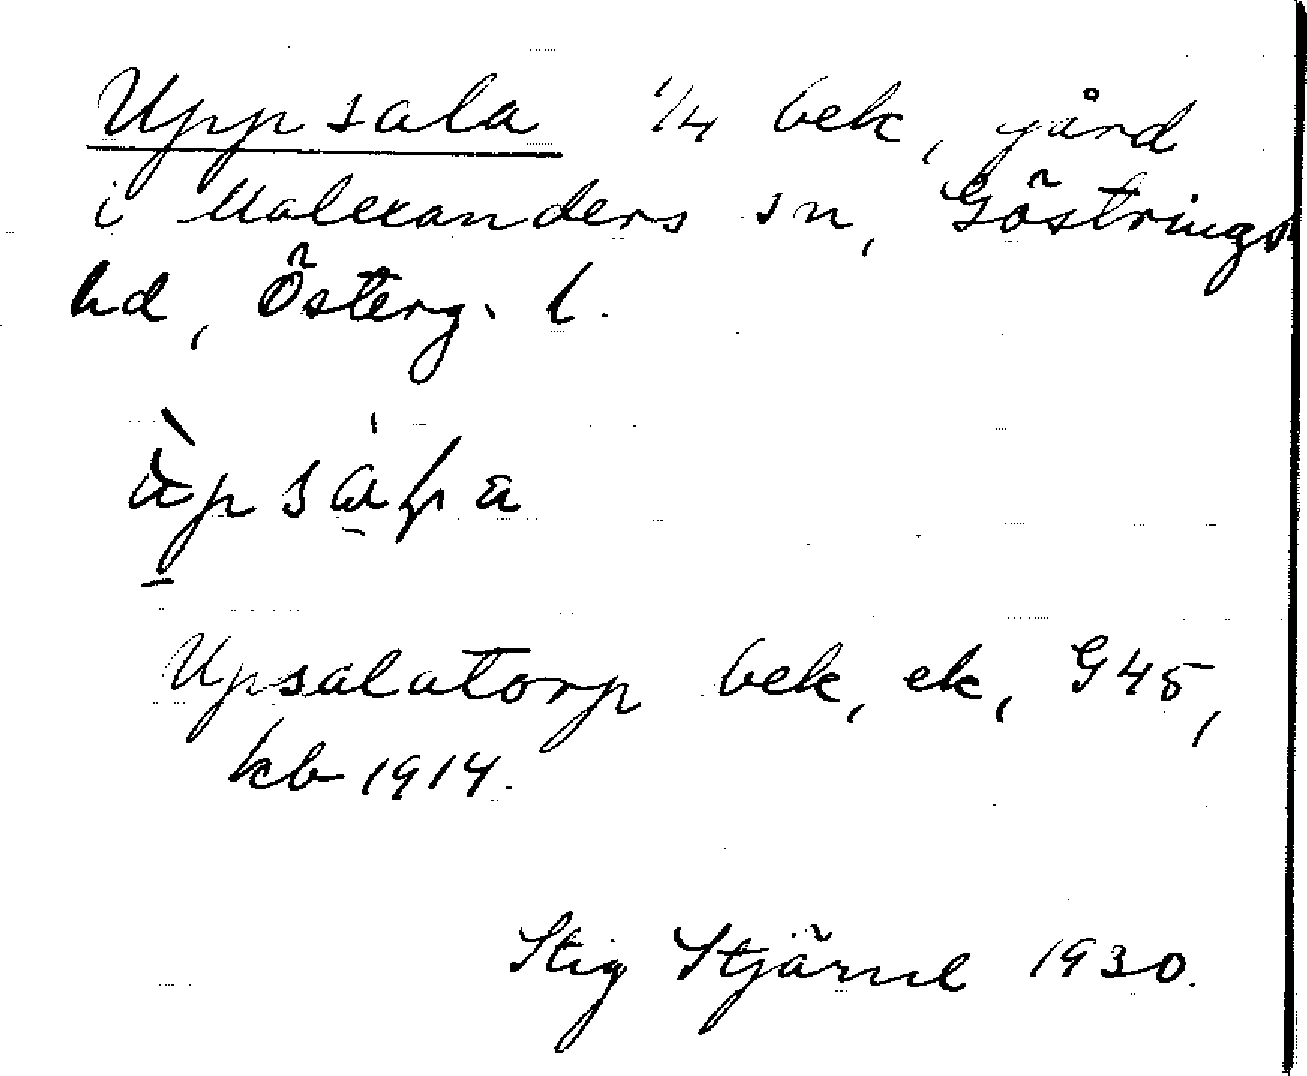 Uppsala 1/4 bek, gård
i Malexanders sn, Göstrings
hd, Österg. l.
Upsalatorp bek, ek, G45,
kb 1914.
Stig Stjärne 1930.